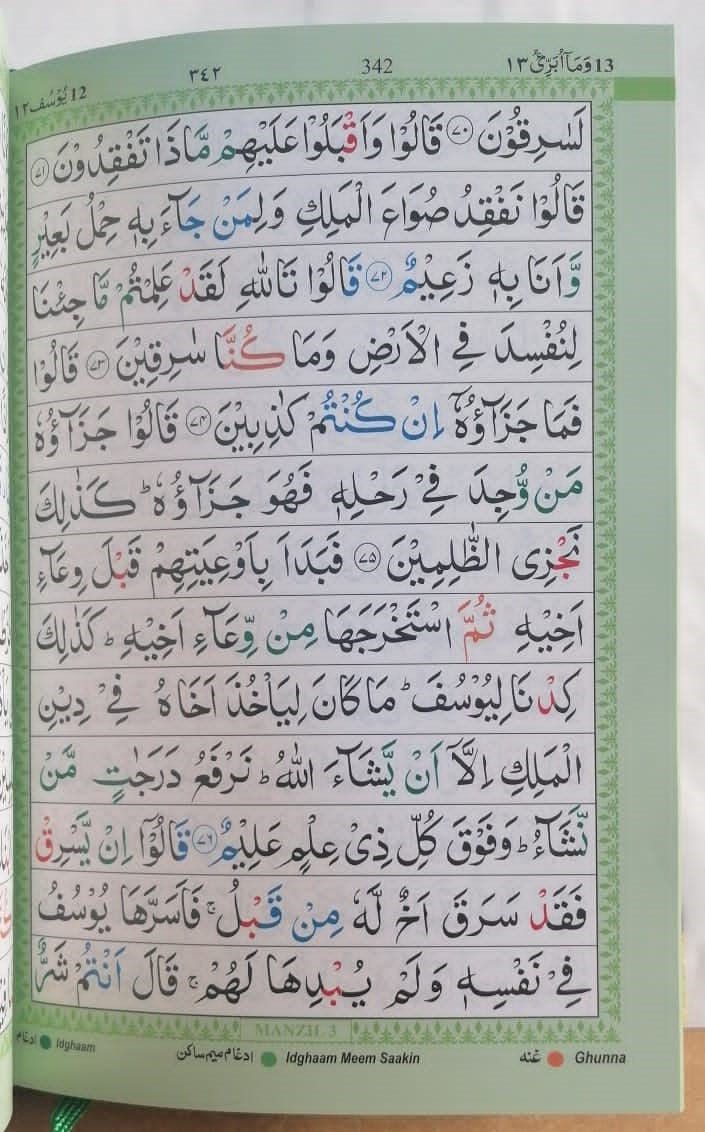 13 وَمَاۤ اُبَرِّئُ ١٣
342
٣٤٢
12 يُوْسُف ١٢
لَسٰرِقُوْنَ ﴿۷۰﴾ قَالُوْا وَاَقْبَلُوْا عَلَيْهِمْ مَّاذَا تَفْقِدُوْنَ ﴿۷۱﴾
قَالُوْا نَفْقِدُ صُوَاعَ الْمَلِكِ وَلِمَنْ جَآءَ بِهٖ حِمْلُ بَعِيْرٍ
وَّاَنَا بِهٖ زَعِيْمٌ ﴿۷۲﴾ قَالُوْا تَاللّٰهِ لَقَدْ عَلِمْتُمْ مَّا جِئْنَا
لِنُفْسِدَ فِي الْاَرْضِ وَمَا كُنَّا سٰرِقِيْنَ ﴿۷۳﴾ قَالُوْا
فَمَا جَزَآؤُهٗۤ اِنْ كُنْتُمْ كٰذِبِيْنَ ﴿۷۴﴾ قَالُوْا جَزَآؤُهٗ
مَنْ وُّجِدَ فِيْ رَحْلِهٖ فَهُوَ جَزَآؤُهٗ ؕ كَذٰلِكَ
نَجْزِى الظّٰلِمِيْنَ ﴿۷۵﴾ فَبَدَاَ بِاَوْعِيَتِهِمْ قَبْلَ وِعَآءِ
اَخِيْهِ ثُمَّ اسْتَخْرَجَهَا مِنْ وِّعَآءِ اَخِيْهِ ؕ كَذٰلِكَ
كِدْنَا لِيُوْسُفَ ؕ مَا كَانَ لِيَاْخُذَ اَخَاهُ فِيْ دِيْنِ
الْمَلِكِ اِلَّاۤ اَنْ يَّشَآءَ اللّٰهُ ؕ نَرْفَعُ دَرَجٰتٍ مَّنْ
نَّشَآءُ ؕ وَفَوْقَ كُلِّ ذِيْ عِلْمٍ عَلِيْمٌ ﴿۷۶﴾ قَالُوْۤا اِنْ يَّسْرِقْ
فَقَدْ سَرَقَ اَخٌ لَّهٗ مِنْ قَبْلُ ۚ فَاَسَرَّهَا يُوْسُفُ
فِيْ نَفْسِهٖ وَلَمْ يُبْدِهَا لَهُمْ ۚ قَالَ اَنْتُمْ شَرٌّ
MANZIL 3
ادغام Idghaam
ادغام میم ساکن Idghaam Meem Saakin
غنه Ghunna